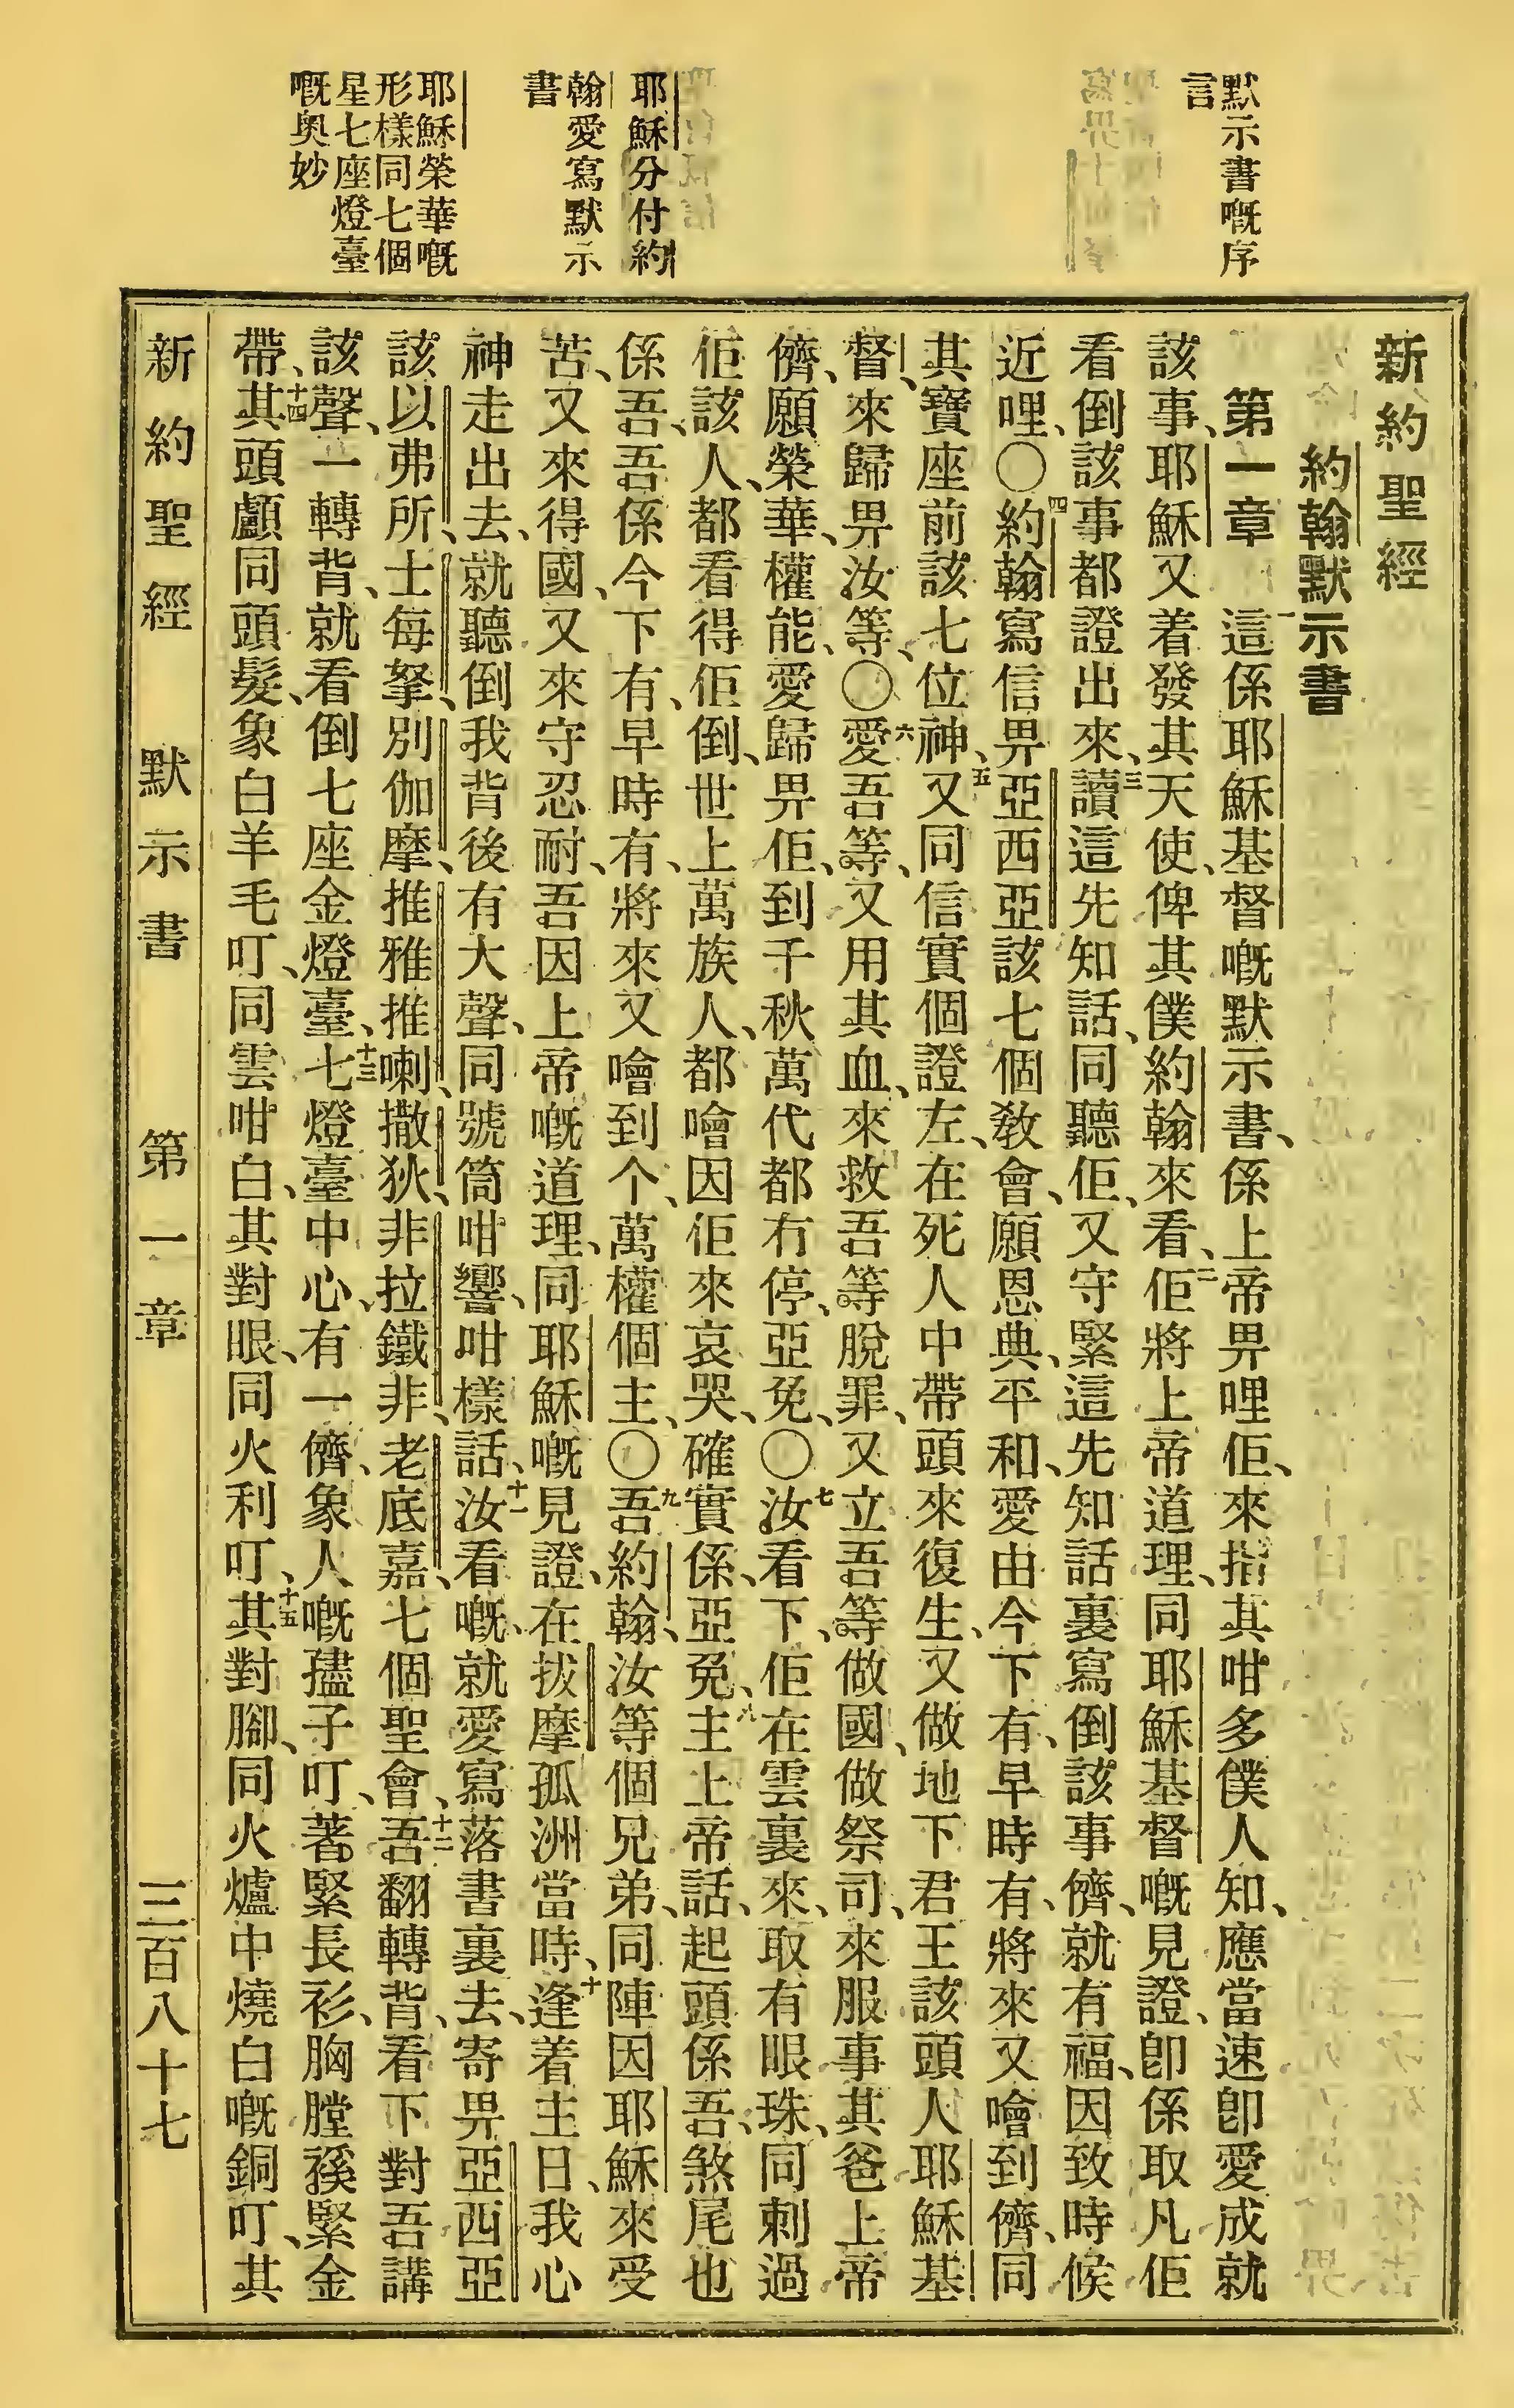 默示書嘅序
言
耶穌分付約
翰愛寫默示
書
耶穌榮華嘅
形樣同七個
星七座燈臺
嘅奥妙
新約聖經
約翰默示書
第一章 一這係耶穌基督嘅默示書、係上帝畀哩佢、來指其咁多僕人知、應當速卽愛成就
該事、耶穌又着發其天使、俾其僕約翰來看、二佢將上帝道理、同耶穌基督嘅見證、卽係取凡佢
看倒該事都證出來、三讀這先知話、同聽佢、又守緊這先知話裏寫倒該事儕、就有福、因致時候
近哩、〇四約翰寫信畀亞西亞該七個教會、願恩典、平和、愛由今下有、早時有、將來又噲到儕、同
其寶座前該七位神、五又同信實個證左、在死人中帶頭來復生、又做地下君王該頭人耶穌基
督、來歸畀汝等、〇六愛吾等、又用其血、來救吾等脫罪、又立吾等做國、做祭司、來服事其爸上帝
儕、願榮華、權能、愛歸畀佢、到千秋萬代都冇停、亞免、〇七汝看下、佢在雲裏來、取有眼珠、同刺過
佢該人、都看得佢倒、世上萬族人、都噲因佢來哀哭、確實係、亞免、八主上帝話、起頭係吾、煞尾也
係吾、吾係今下有、早時有、將來又噲到个、萬權個主、〇九吾約翰、汝等個兄弟、同陣因耶穌來受
苦、又來得國、又來守忍耐、吾因上帝嘅道理、同耶穌嘅見證、在拔摩孤洲當時、十逢着主日、我心
神走出去、就聽倒我背後有大聲、同號筒咁響、咁樣話、十一汝看嘅、就愛寫落書裏去、寄畀亞西亞
該以弗所、士每拏、別伽摩、推雅推喇、撒狄、非拉鐵非、老底嘉、七個聖會、十二吾翻轉背、看下對吾講
該聲、一轉背、就看倒七座金燈臺、十三七燈臺中心、有一儕、象人嘅孻子叮、著緊長衫、胸膛𧜵緊金
帶、十四其頭顱同頭髮、象白羊毛叮、同雲咁白、其對眼、同火利叮、十五其對腳、同火爐中燒白嘅銅叮、其
新約聖經 默示書 第一章 三百八十七